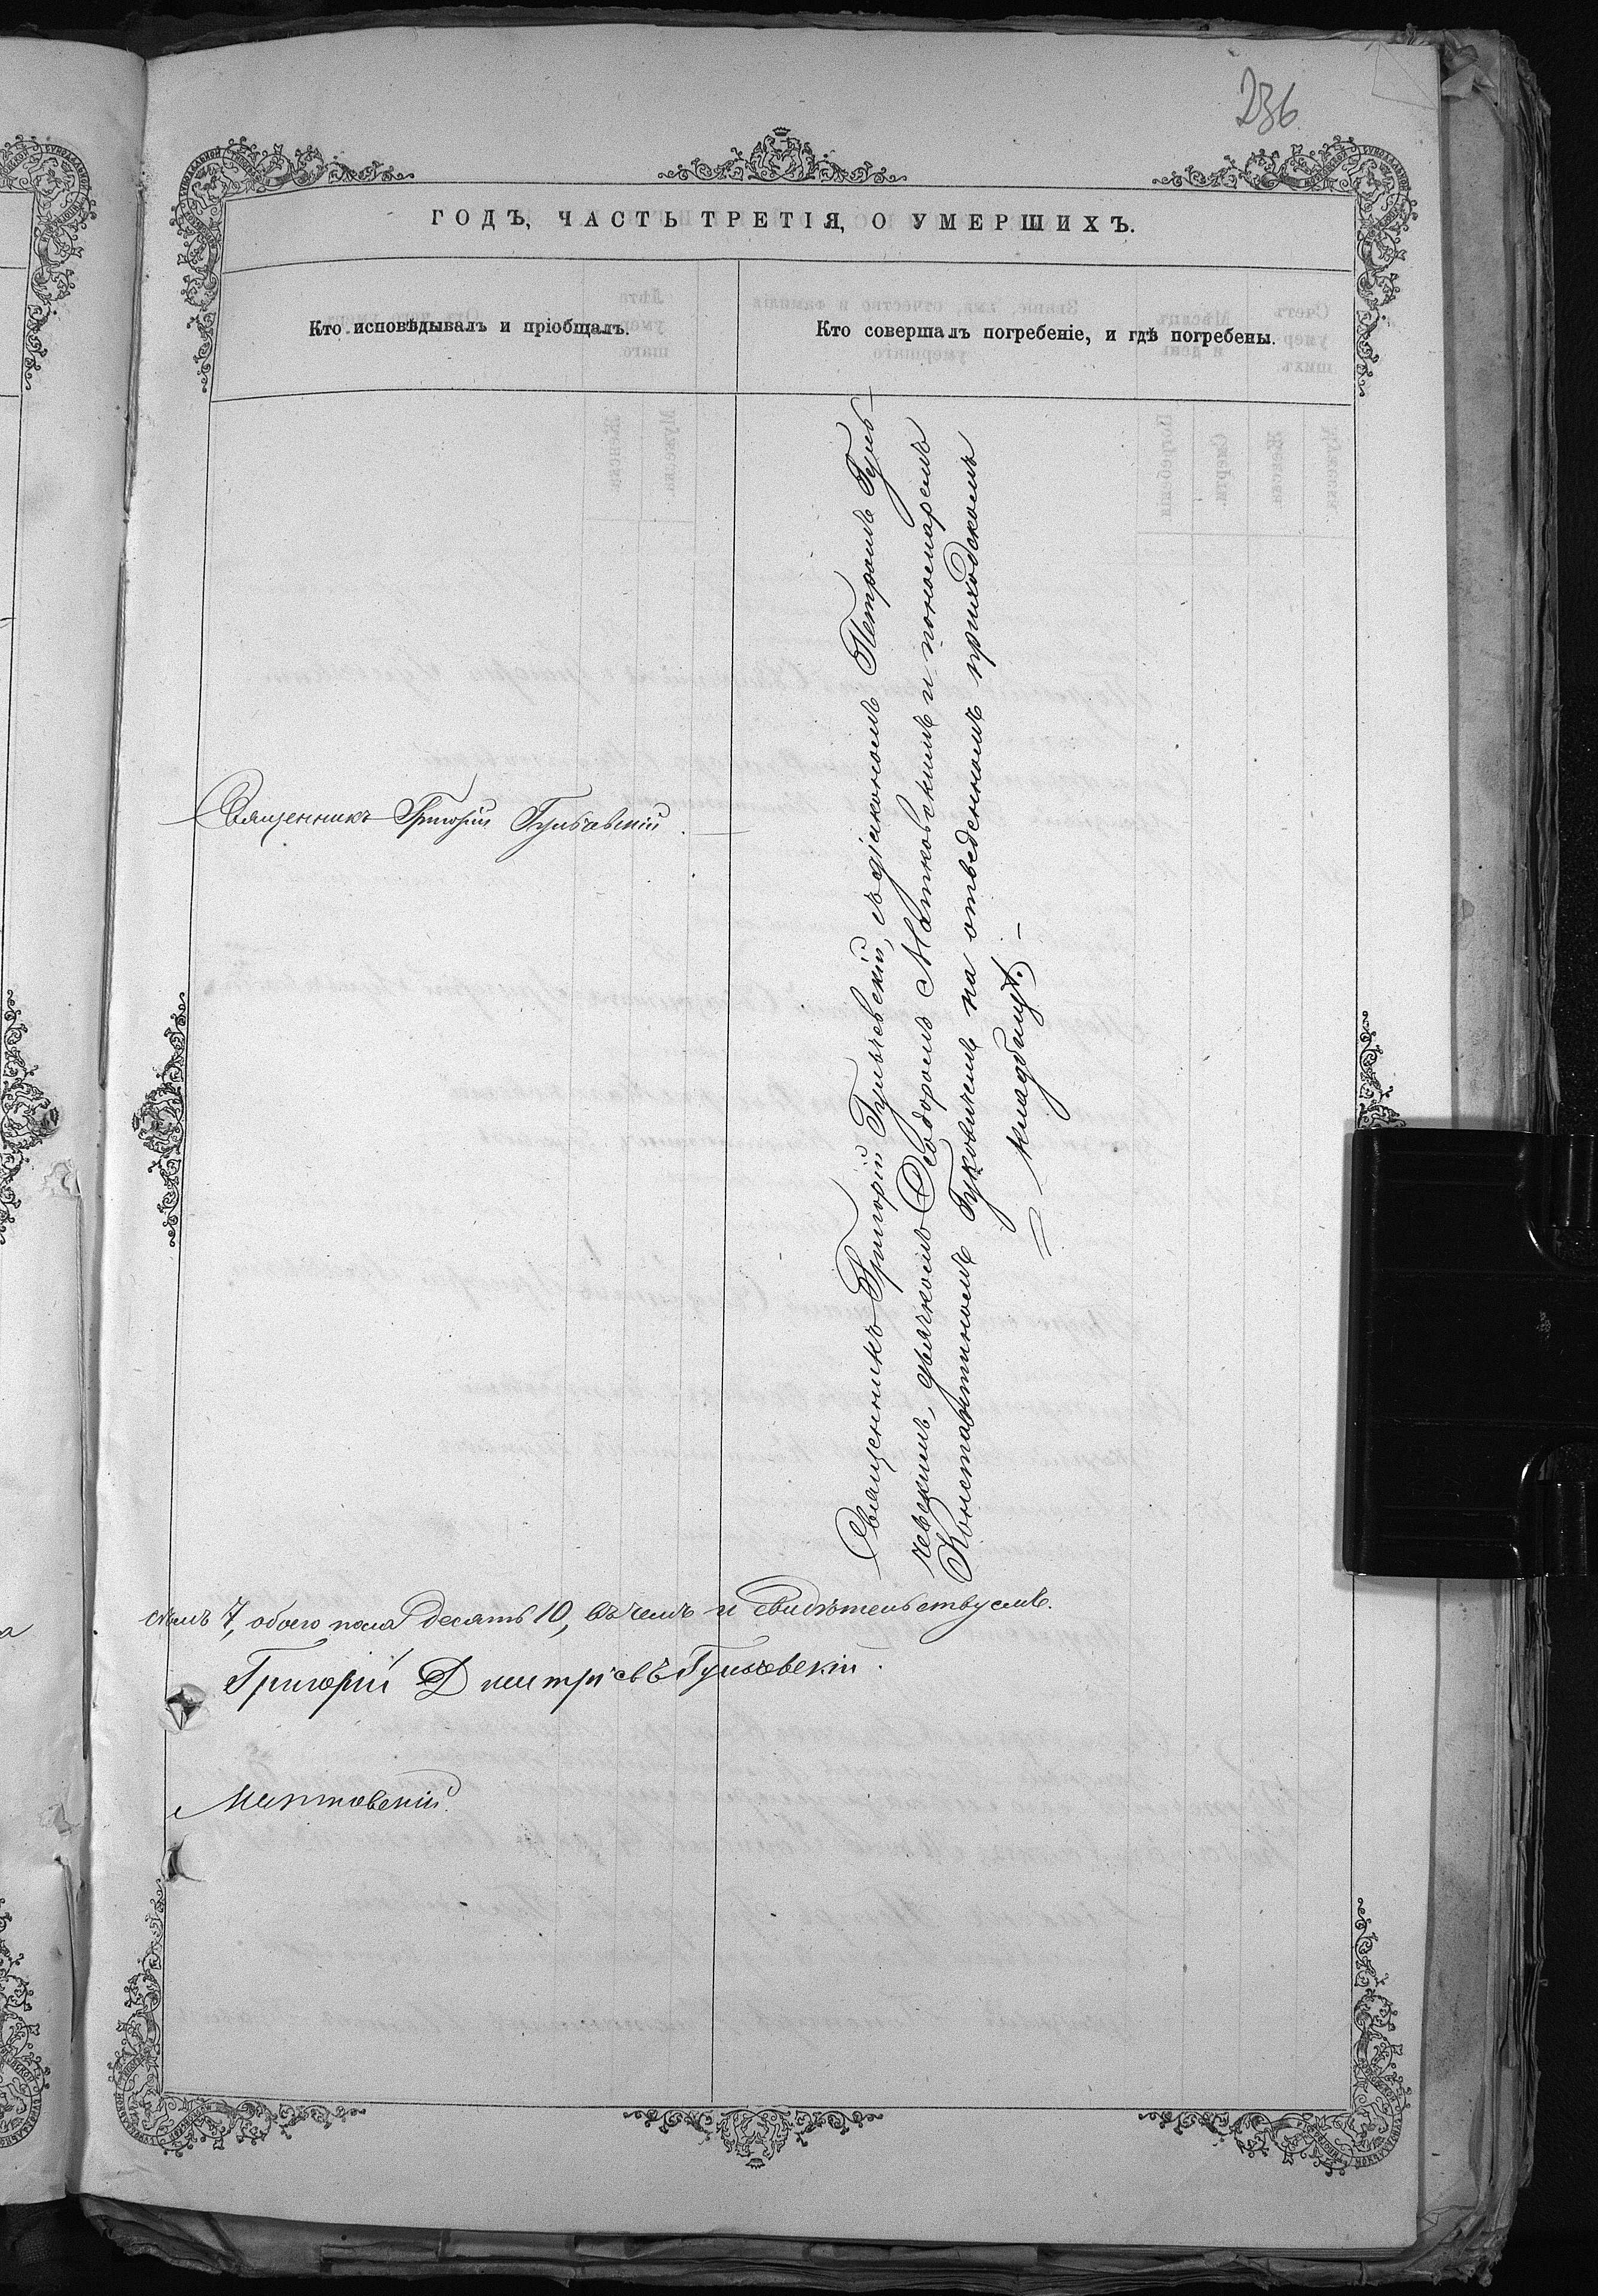 236
ГОДЪ, ЧАСТЬ ТРЕТІЯ, О УМЕРШИХЪ.
Кто исповѣдывалъ и пріобщалъ.
Кто совершалъ погребеніе, и гдѣ погребены.
Священникъ Григорій Гульчевскій.
Священникъ Григорій Гульчевскій, съ діакономъ Петромъ Гуль-
чевскимъ, дьячкомъ Ѳеодоромъ Матковскимъ и пономаремъ
Константиномъ Гуковичемъ на отведенномъ приходскомъ
кладбищѣ. –
семь 7, обоего пола десять 10, въ чемъ и свидѣтельствуемъ.
Григорій Дмитріевъ Гульчевскій.
Матковскій.